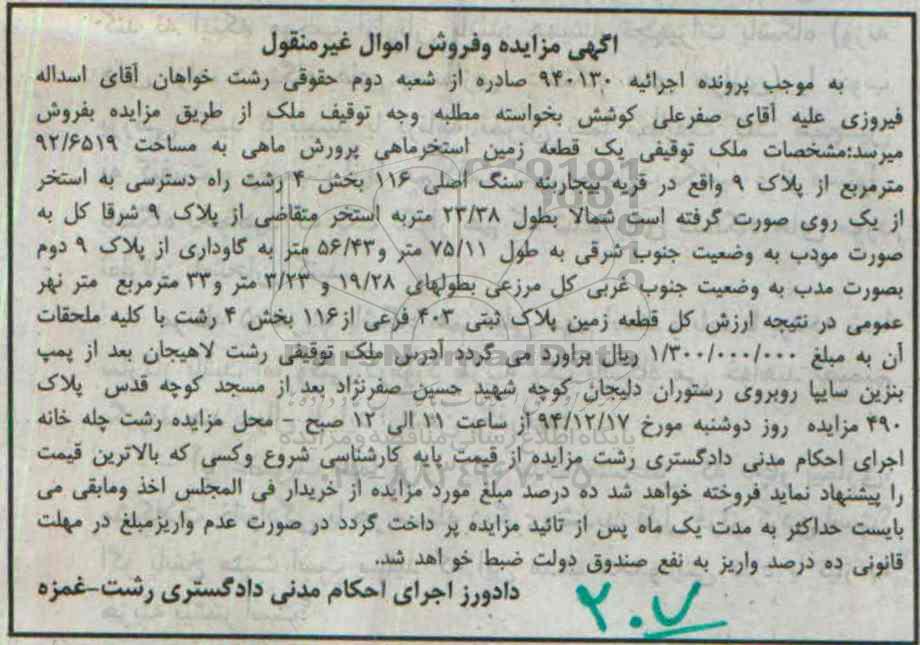 اگهی مزایده وفروش اموال غیرمنقول
به موجب پرونده اجرائیه ۹۴۰۱۳۰ صادره از شعبه دوم حقوقی رشت خواهان آقای اسداله
فیروزی علیه آقای صفرعلی کوشش بخواسته مطلبه وجه توقیف ملک از طریق مزایده بفروش
میرسد:مشخصات ملک توقیفی یک قطعه زمین استخرماهی پرورش ماهی به مساحت ۹۲/۶۵۱۹
مترمربع از پلاک ۹ واقع در قریه بیجاربنه سنگ اصلی ۱۱۶ بخش ۴ رشت راه دسترسی به استخر
از یک روی صورت گرفته است شمالا بطول ۲۳/۳۸ متربه استخر متقاضی از پلاک ۹ شرقا کل به
صورت مودب به وضعیت جنوب شرقی به طول ۷۵/۱۱ متر و۵۶/۴۳ متر به گاوداری از پلاک ۹ دوم
بصورت مدب به وضعیت جنوب غربی کل مرزعی بطولهای ۱۹/۲۸ و ۳/۲۳ متر و۳۳ مترمربع متر نهر
عمومی در نتیجه ارزش کل قطعه زمین پلاک ثبتی ۴۰۳ فرعی از۱۱۶ بخش ۴ رشت با کلیه ملحقات
آن به مبلغ ۱/۳۰۰/۰۰۰/۰۰۰ ریال براورد می گردد آدرس ملک توقیفی رشت لاهیجان بعد از پمپ
بنزین سایپا روبروی رستوران دلیجان کوچه شهید حسین صفرنژاد بعد از مسجد کوچه قدس پلاک
۴۹۰ مزایده روز دوشنبه مورخ ۹۴/۱۲/۱۷ از ساعت ۱۱ الی ۱۲ صبح - محل مزایده رشت چله خانه
اجرای احکام مدنی دادگستری رشت مزایده از قیمت پایه کارشناسی شروع وکسی که بالاترین قیمت
را پیشنهاد نماید فروخته خواهد شد ده درصد مبلغ مورد مزایده از خریدار فی المجلس اخذ ومابقی می
بایست حداکثر به مدت یک ماه پس از تائید مزایده پر داخت گردد در صورت عدم واریزمبلغ در مهلت
قانونی ده درصد واریز به نفع صندوق دولت ضبط خو اهد شد.
دادورز اجرای احکام مدنی دادگستری رشت-غمزه
۲۰۷